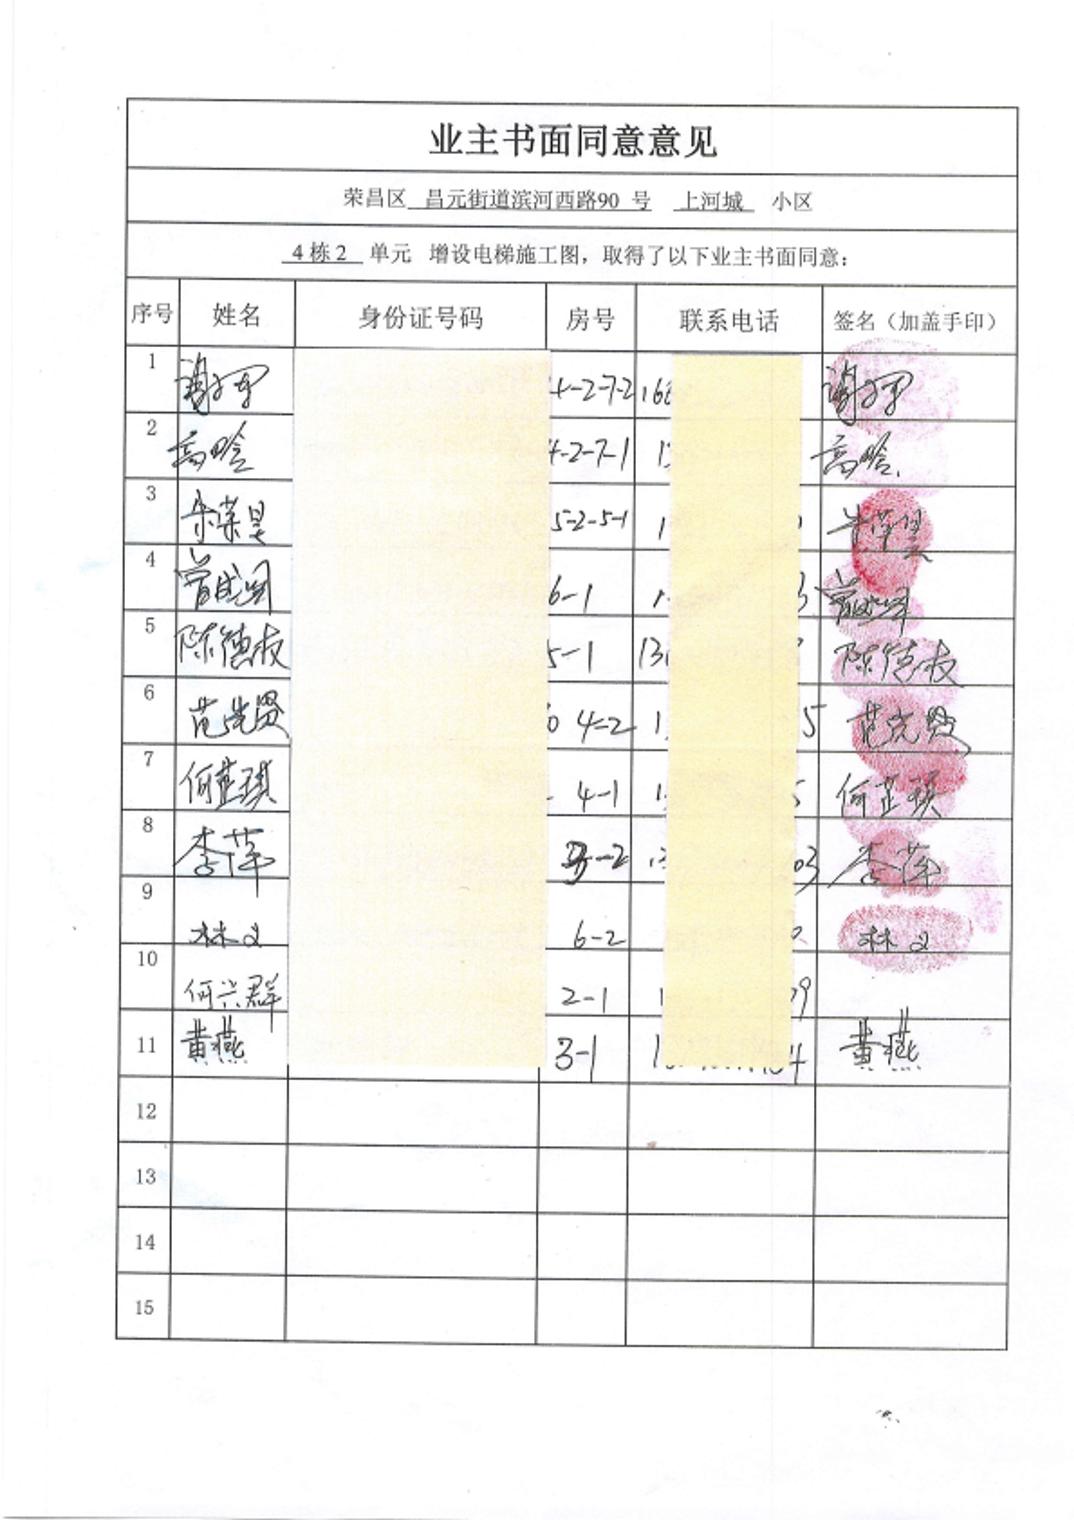 业主书面同意意见
荣昌区 昌元街道滨河西路90 号 上河城 小区
4栋2 单元 增设电梯施工图，取得了以下业主书面同意：
序号 姓名 身份证号码 房号 联系电话 签名（加盖手印）
1 4-2-7-2 16
2 高晗 4-2-7-1 1 高晗
3 5-2-5-1 1
4 6-1 3
5 陈德友 5-1 13 陈德友
6 范光贤 4-2 1 5 范光贤
7 何芷琪 4-1 1 何芷琪
8 李萍 -2 03 李萍
9 林义 6-2 林义
10 何兴群 2-1 1 79
11 黄燕 3-1 1 4 黄燕
12
13
14
15